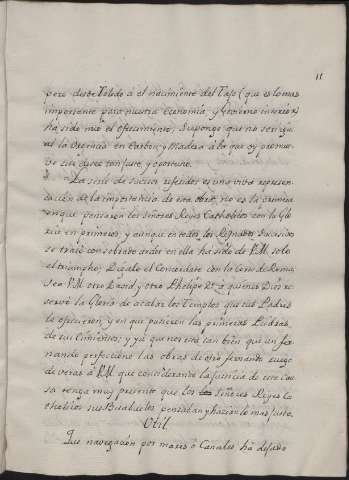 11
pero desde Toledo á el nacimiento del Tajo (que es lo mas
importante para nuestra economia, y Govierno interior)
ha sido mio el ofrecimiento; Supongo que no se niega
á la Provincia en Carbon y Madera á la que oy promue
ve este deseo constante, y oportuno.
La serie de sucesos referidos es una viva represen
tacion de la importancia de esta obra, no es la primera
en que pensaron los Señores Reyes Catholicos con la Glo
ria en primeros, y aunque en todos los Reynados
se trató con sobrado ardor en ella ha sido de V.M. solo
el triumpho; Digalo el Comendare con la
Sea V.M. otro David, y otro Phelipe 2º á quienes Dios re
servó la Gloria de acabar los Templos que sus Padres
le ofrecieron, y en que pusieron las primeras Piedras,
de sus Cimientos; y ya que nos está tan bien que un fer
nando perfeccione las obras de otro fernando, ruego
de veras á V.M. que considerando la Justicia de esta Cau
sa tenga muy presente que los Señores Reyes Ca
tholicos sus Bisabuelos pensaban y hacian lo mas justo.
Util
Que navegacion por mares ó Canales ha dejado